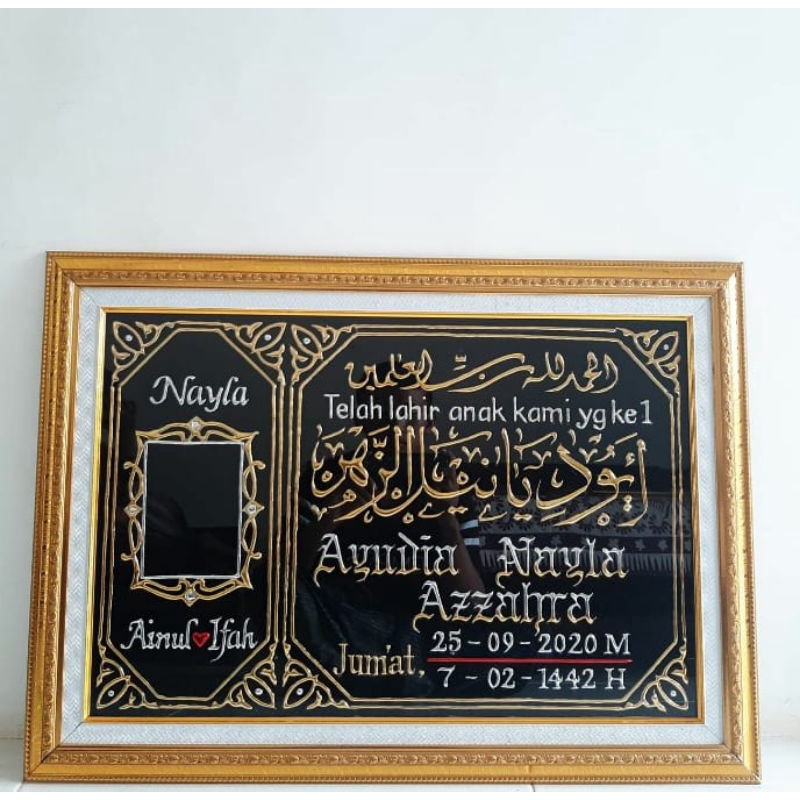 Nayla
Ainul Ifah
الحمد لله رب العلمين
Telah lahir anak kami yg ke 1
أيوديا نيلا الزهرا
Ayudia Nayla
Azzahra
Jum'at, 25 - 09 - 2020 M
7 - 02 - 1442 H